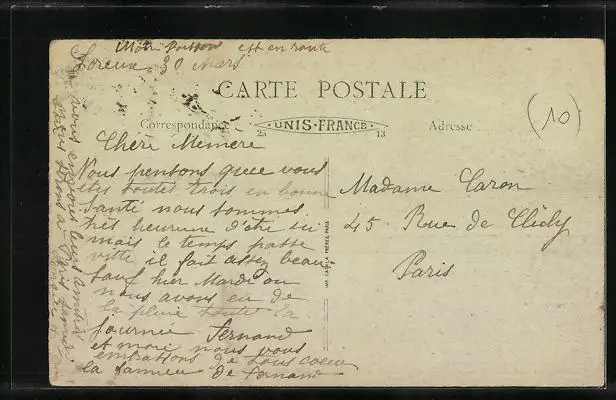 Mon Poisson est en route
30 Mars
CARTE POSTALE
Correspondance
UNIS-FRANCE
25 13
Adresse
10
Chère Mémère
Nous pensons que vous
êtes toutes trois en bonne
santé nous sommes
très heureux d'être ici
mais le temps passe
vite il fait assez beau
sauf hier Mardi ou
nous avons eu de
la pluie toute la
journée Fernand
et moi nous vous
embrassons de tous coeur
la de Fernand
Madame Caron
45 Rue de Clichy
Paris